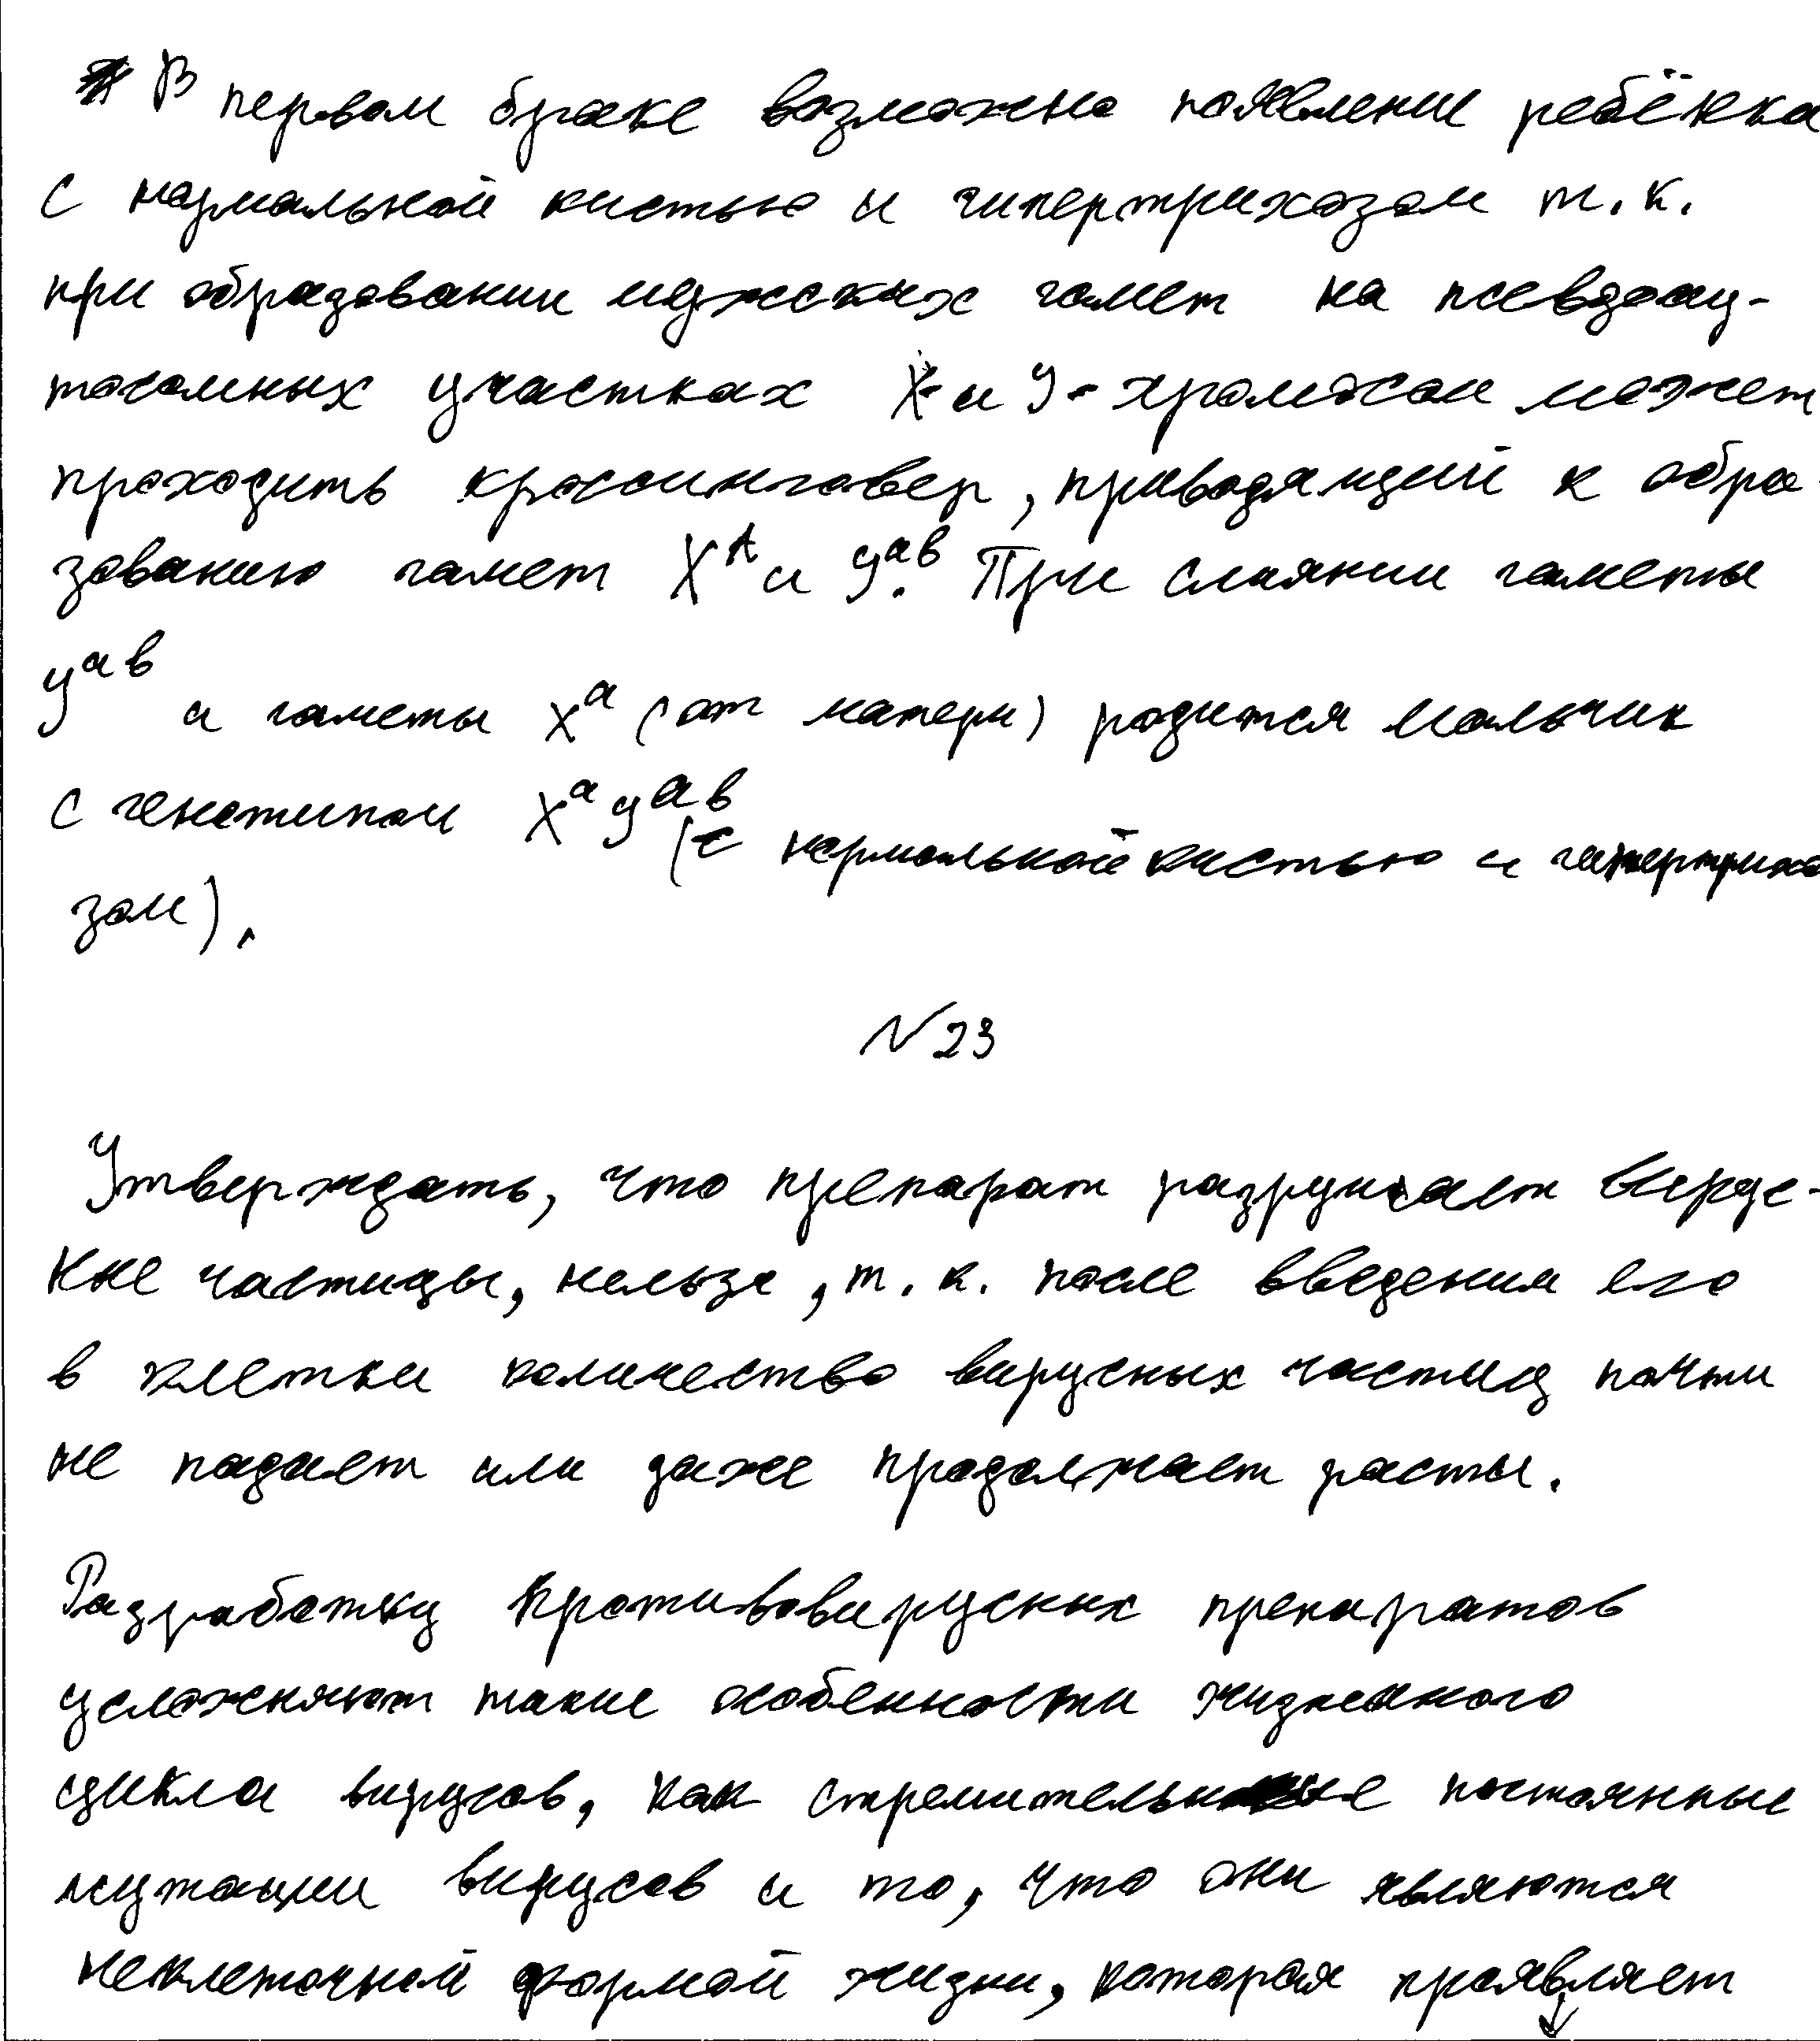 В первом браке возможно появление ребёнка
с нормальной кистью и гипертрихозом т.к.
при образовании мужских гамет на псевдоау-
тосомных участках X- и Y- хромосом может
проходить кроссинговер, приводящий к обра-
зованию гамет Xᴬ и Yᵃᵇ. При слиянии гаметы
Yᵃᵇ и гаметы Xᵃ (от матери) родится мальчик
с генотипом XᵃYᵃᵇ (с нормальной кистью и гипертрихо
зом).
№23
Утверждать, что препарат разрушает вирус-
ные частицы, нельзя, т.к. после введения его
в клетки количество вирусных частиц почти
не падает или даже продолжает расты.
Разработку противовирусных препаратов
усложняют такие особенности жизненного
цикла вирусов, как стремительные постоянные
мутации вирусов и то, что они являются
неклеточной формой жизни, которая проявляет